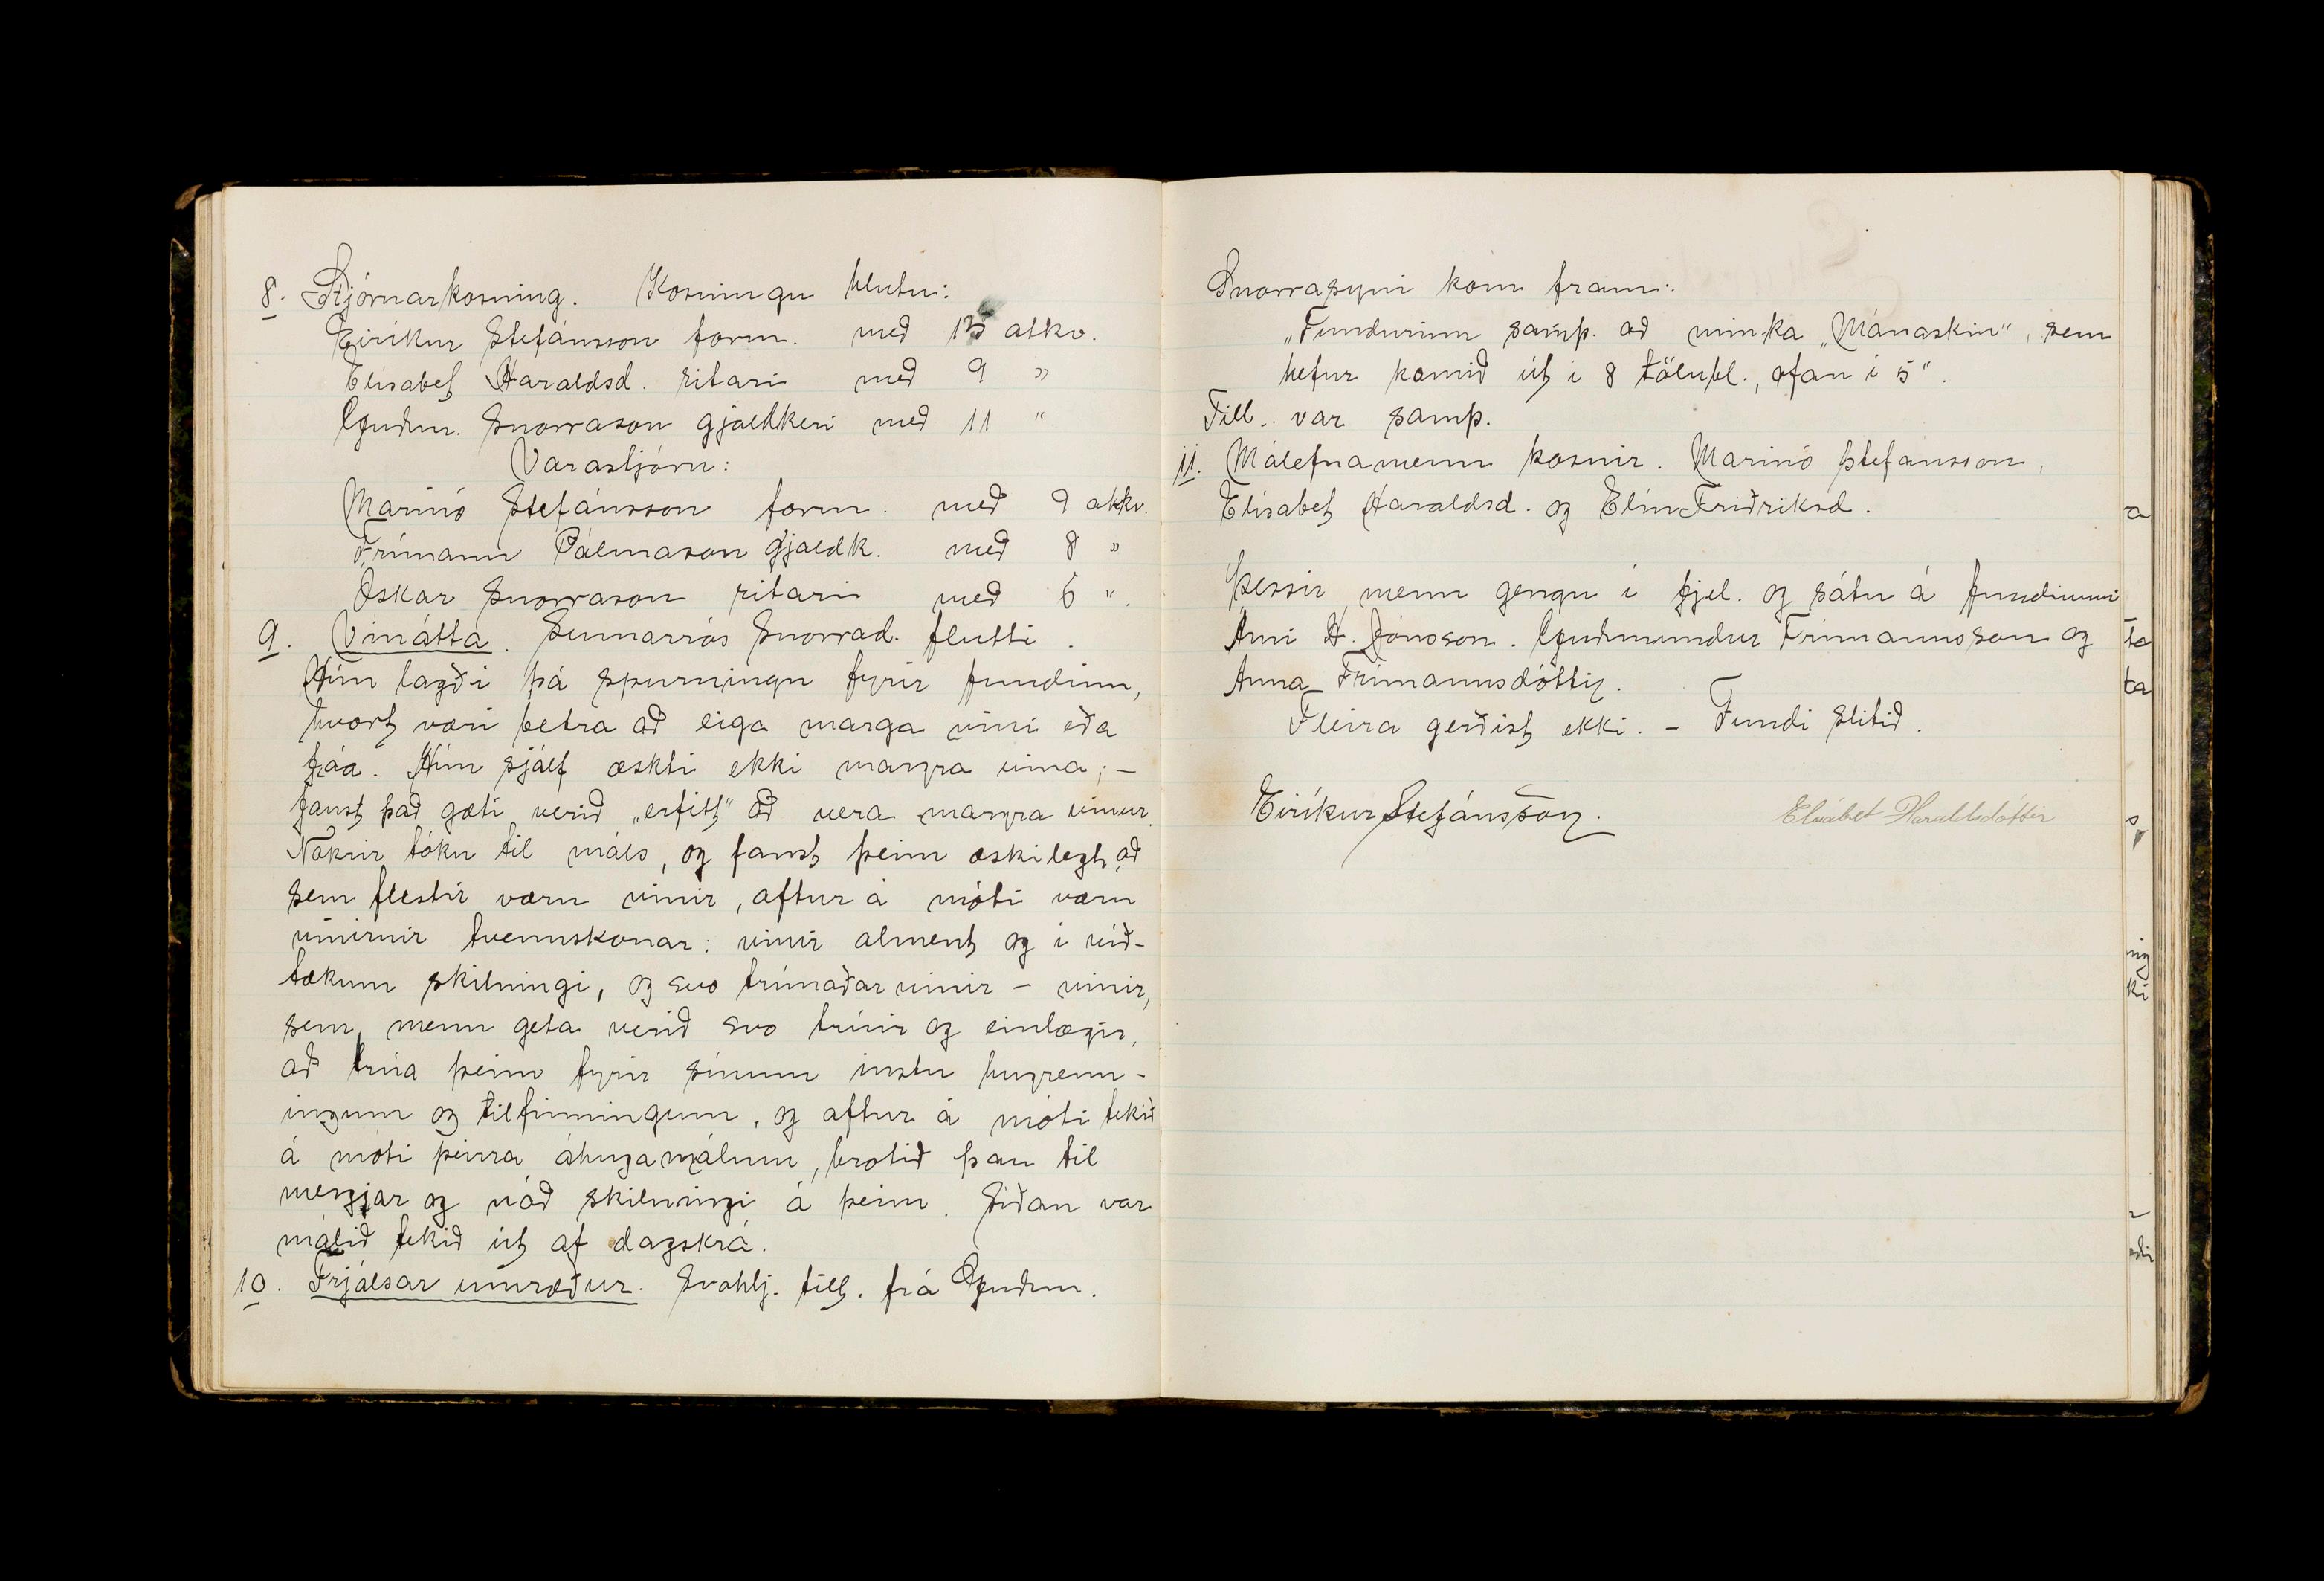 8. Stjórnarkosning. Kosningu hlutu:
Eiríkur Stefánsson form. með 13 atkv.
Elísabet Haraldsd. ritari með 9 "
Guðm. Snorrason gjaldkeri með 11 "
Varastjórn:
Marinó Stefánsson form. með 9 atkv.
Frímann Pálmason gjaldk. með 8 "
Óskar Snorrason ritari með 6 ".
9. Vinátta. Sumarrós Snorrad. flutti.
Hún lagði þá spurningu fyrir fundinn,
hvort væri betra að eiga marga vini eða
fáa. Hún sjálf æskti ekki margra vina; –
fanst það gæti verið „erfitt" að vera margra vinur.
Nokrir tóku til máls, og fanst þeim æskilegt, að
sem flestir væru vinir, aftur á móti væru
vinirnir tvennskonar: vinir alment og í víð-
tækum skilningi, og svo trúnaðarvinir – vinir,
sem menn geta verið svo trúir og einlægir,
að trúa þeim fyrir sínum instu hugrenn-
ingum og tilfinningum, og aftur á móti tekið
á móti þeirra áhugamálum, brotið þau til
mergjar og náð skilningi á þeim. Síðan var
málið tekið út af dagskrá.
10. Frjálsar umræður. Svohlj. till. frá Guðm.
Snorrasyni kom fram:
„Fundurinn samþ. að minka „Mánaskin", sem
hefur komið út í 8 tölubl., ofan í 5".
Till. var samþ.
11. Málefnamenn kosnir. Marinó Stefánsson,
Elísabet Haraldsd. og Elín Friðriksd.
Þessir menn gengu í fjel. og sátu á fundinum
Árni H. Jónsson. Guðmundur Frímannsson og
Anna Frímannsdóttir.
Fleira gerðist ekki. – Fundi slitið.
Eiríkur Stefánsson. Elísabet Haraldsdóttir